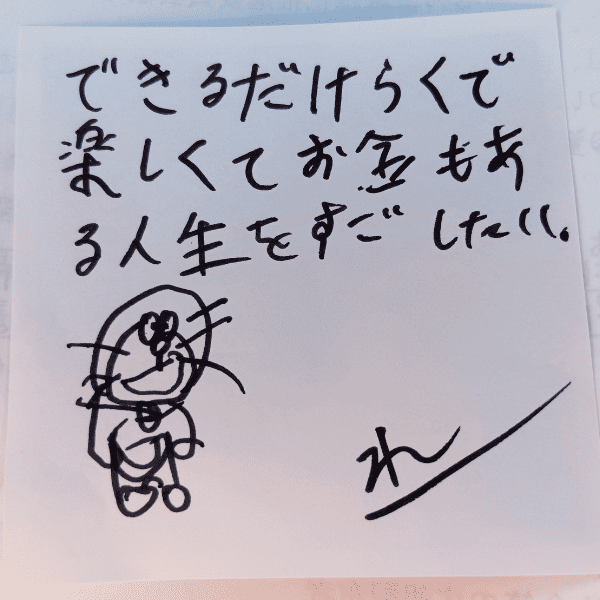 できるだけらくで
楽しくてお金もあ
る人生をすごしたい。
れ